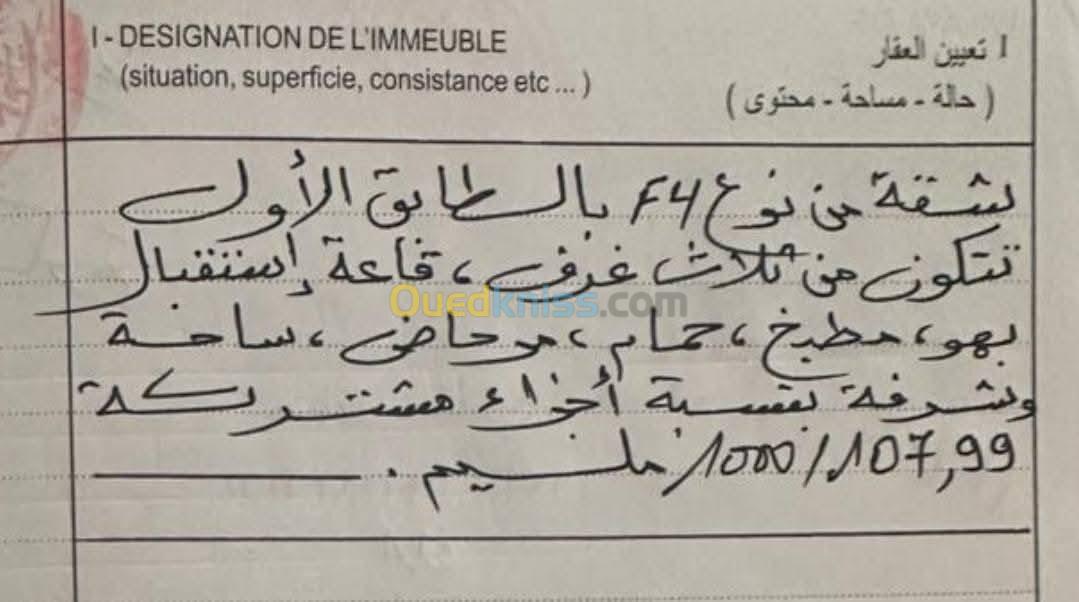 I - DESIGNATION DE L'IMMEUBLE
(situation, superficie, consistance etc ... )
I تعيين العقار
( حالة - مساحة - محتوى )
شقة من نوع F4 بالطابق الأول
تتكون من ثلاث غرف، قاعة إستقبال
بهو، مطبخ، حمام، مرحاض، ساحة
وشرفة بنسبة أجزاء مشتركة
1000/107,99 ملسيم.
Ouedkniss.com